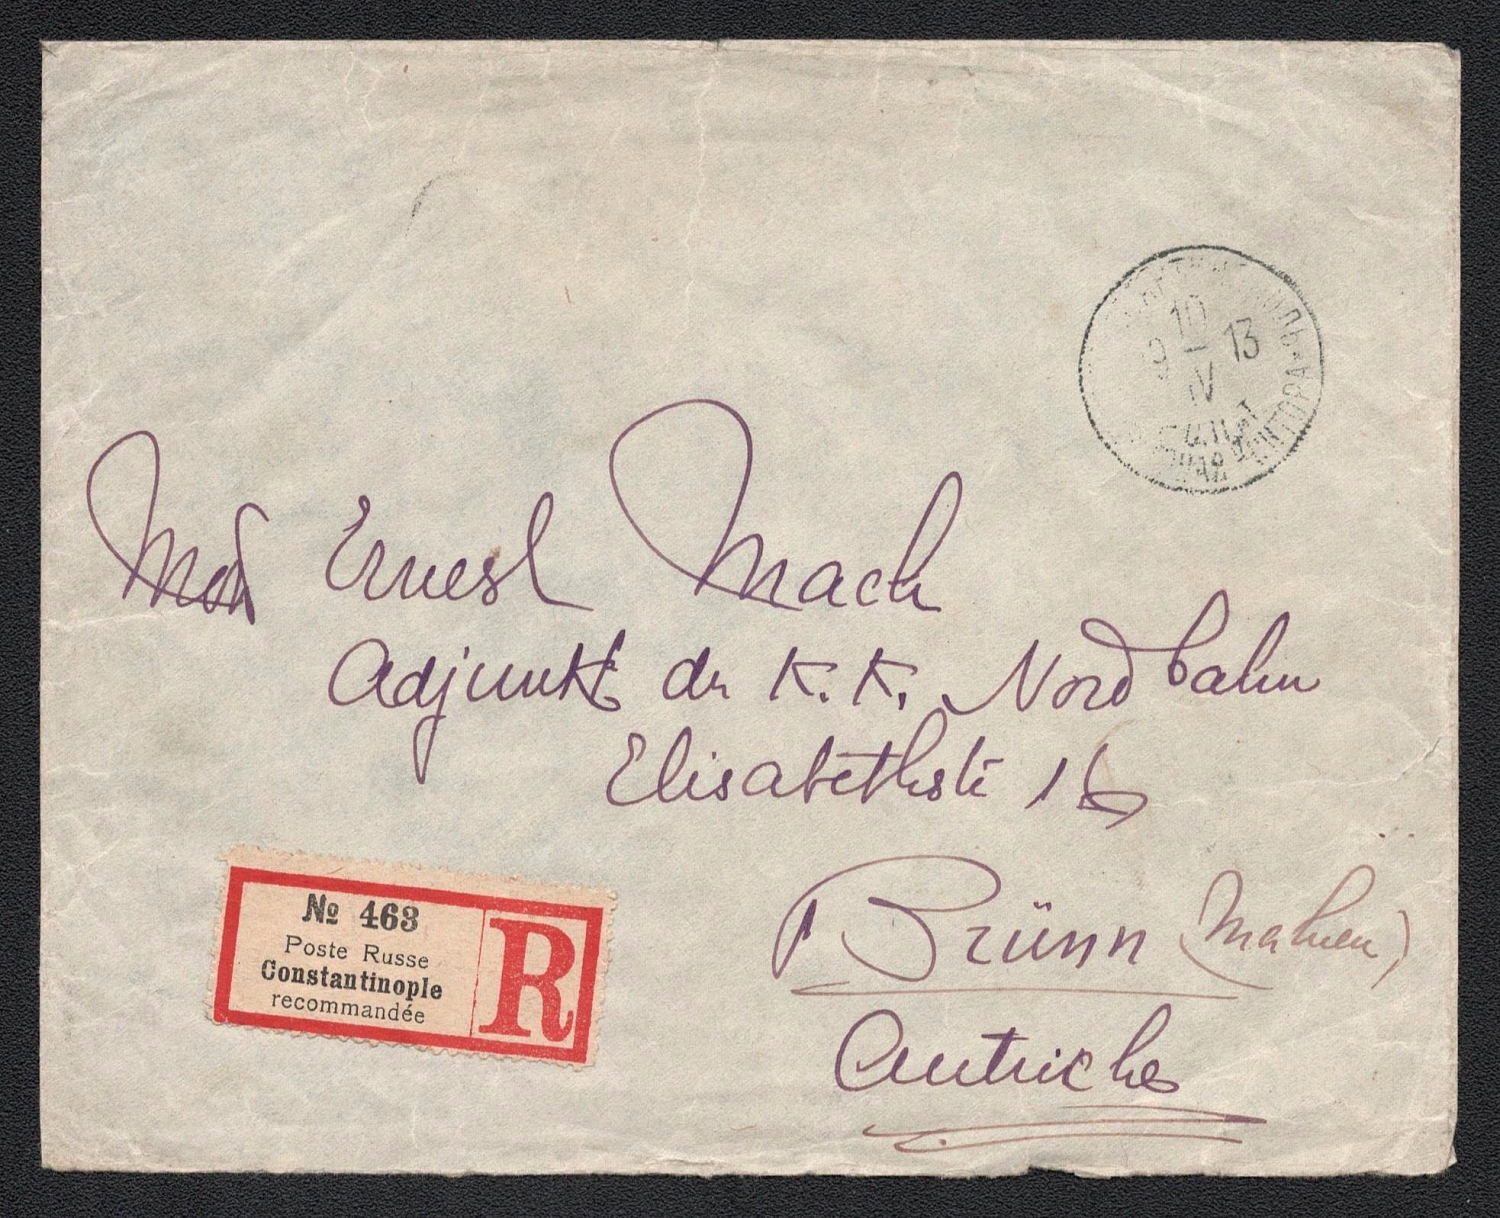 10
9 13
IV
Ernest Mach
Adjunkt der K. K. Nordbahn
Elisabethstr 16
Brünn (Mähren)
Autriche
№ 463
Poste Russe
Constantinople
recommandée
R